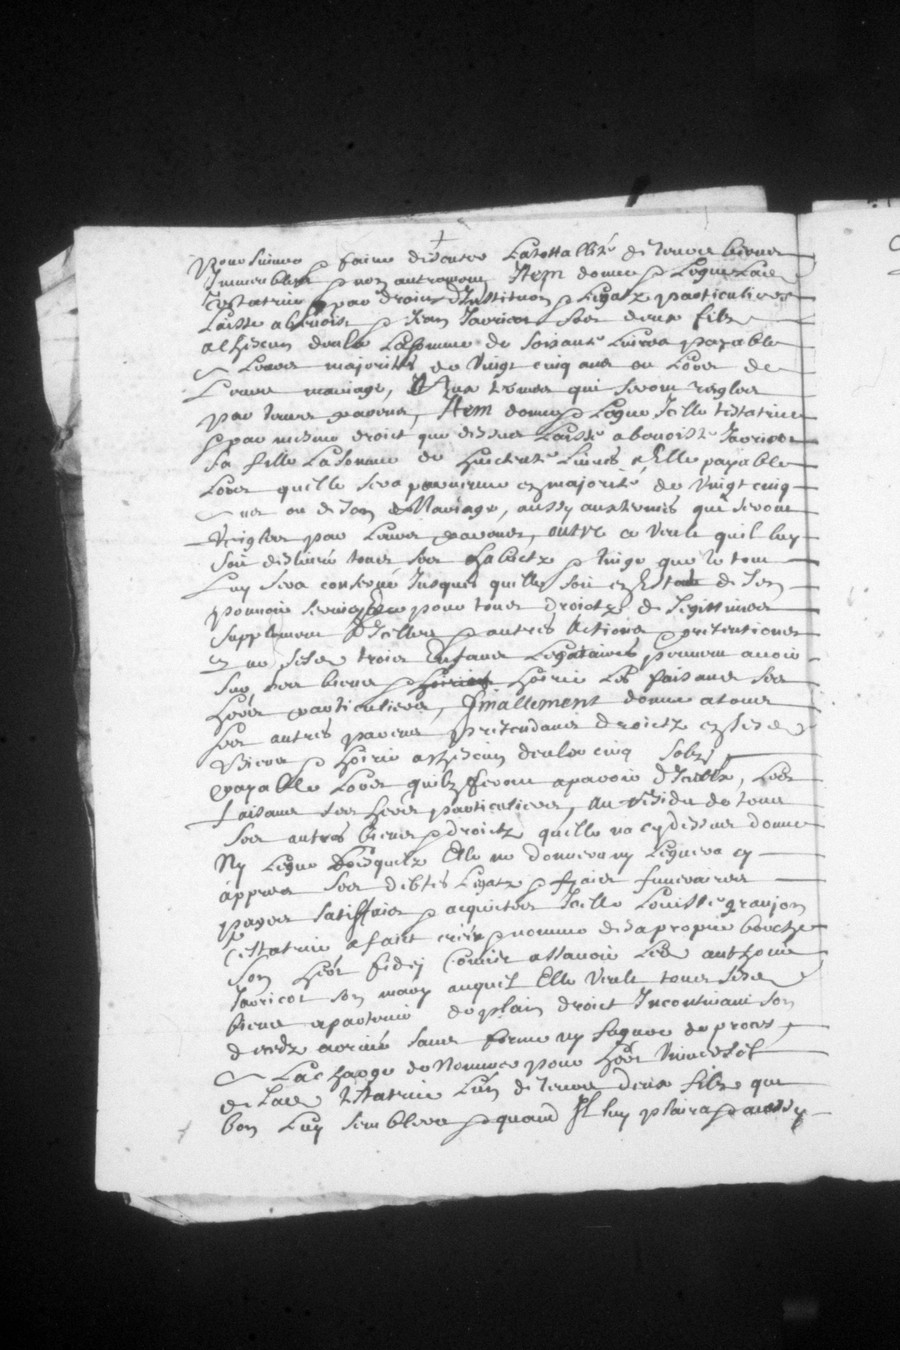 Poursuivre & faire discuter la totallité de leurs biens
Immeubles & non autrement Item donne & legue lade
Testatrice & par droict d'Institution & legatz particuliers
laisse a Benoist & Jean Javricot ses deux filz
a chescun deulx la somme de soixante Livres payable
a Leurs majorités de Vingt cinq ans ou Lors de
Leurs mariage, & aux termes qui seront regles
par leurs parens, Item donne & legue Icelle testatrice
& par mesme droict que dessus laisse a benoiste Javricot
sa fille La somme de huictente Livres a Elle payable
Lors quelle sera parvenue en majorité de Vingt cinq
ans ou de son Mariage, aussy aux termes qui seront
Reigles par Leurs parens, outre ce Veult quil luy
soit deslivré tous ses habictz & linge que le tout
Luy sera conservé Jusques quelle soit en Estat de sen
pouvoir servir & ce pour tous droictz de legittimes
supplement d'Icelles & autres actions & prétentions
que sesd troies Enfans Legataires peuvent avoir
sur ses biens & hoirie les faisans ses
hérs particuliers, finallement donne a tous
ses autres parens prétendans droictz en sesd
Biens & hoirie a chescun deulx cinq solz
payable Lors quilz feront aparoir d'Iceulx, Les
faisans ses hérs particuliers, au résidu de tous
ses autres biens & droictz quelle na cy dessus donne
Ny Legue desquelz Elle ne donnera ny leguera cy
appres ses debtes Legatz & frais funeraires
payes satisfaies & acquictes Icelle Louisse granjon
testatrice a faict créer & nomme de sa propre bouche
son hér fidei Comis assavoir led anthoine
Javricot son mary auquel Elle Veult tous sesd
biens apartenir de plain droict Incontinant son
deceds arrivé sans forme ny figure de proces
a La charge de Nommer pour hér Universel
de lade testatrice Lun de leurs deux filz que
bon Luy semblera & quand Il luy plaira & aussy